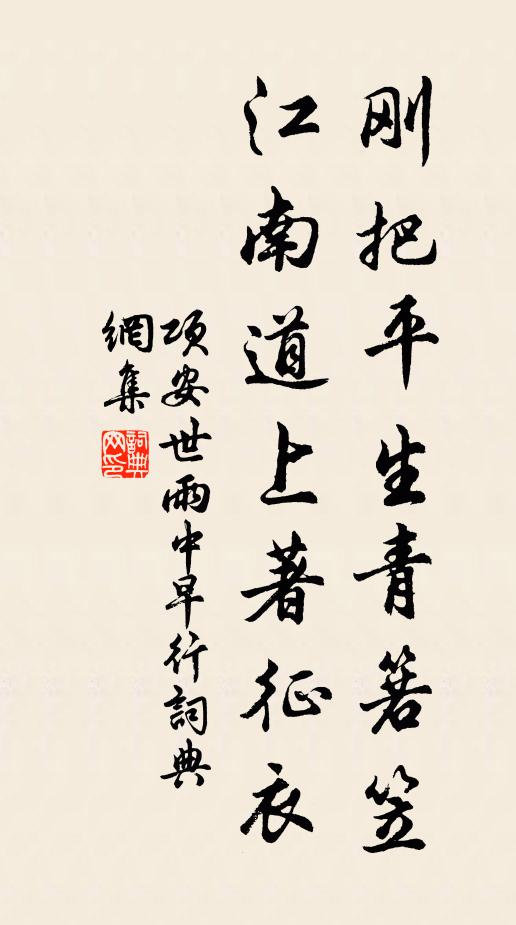 刚把平生青箬笠
江南道上著征衣
项安世雨中早行词典
網集
詞典
网印